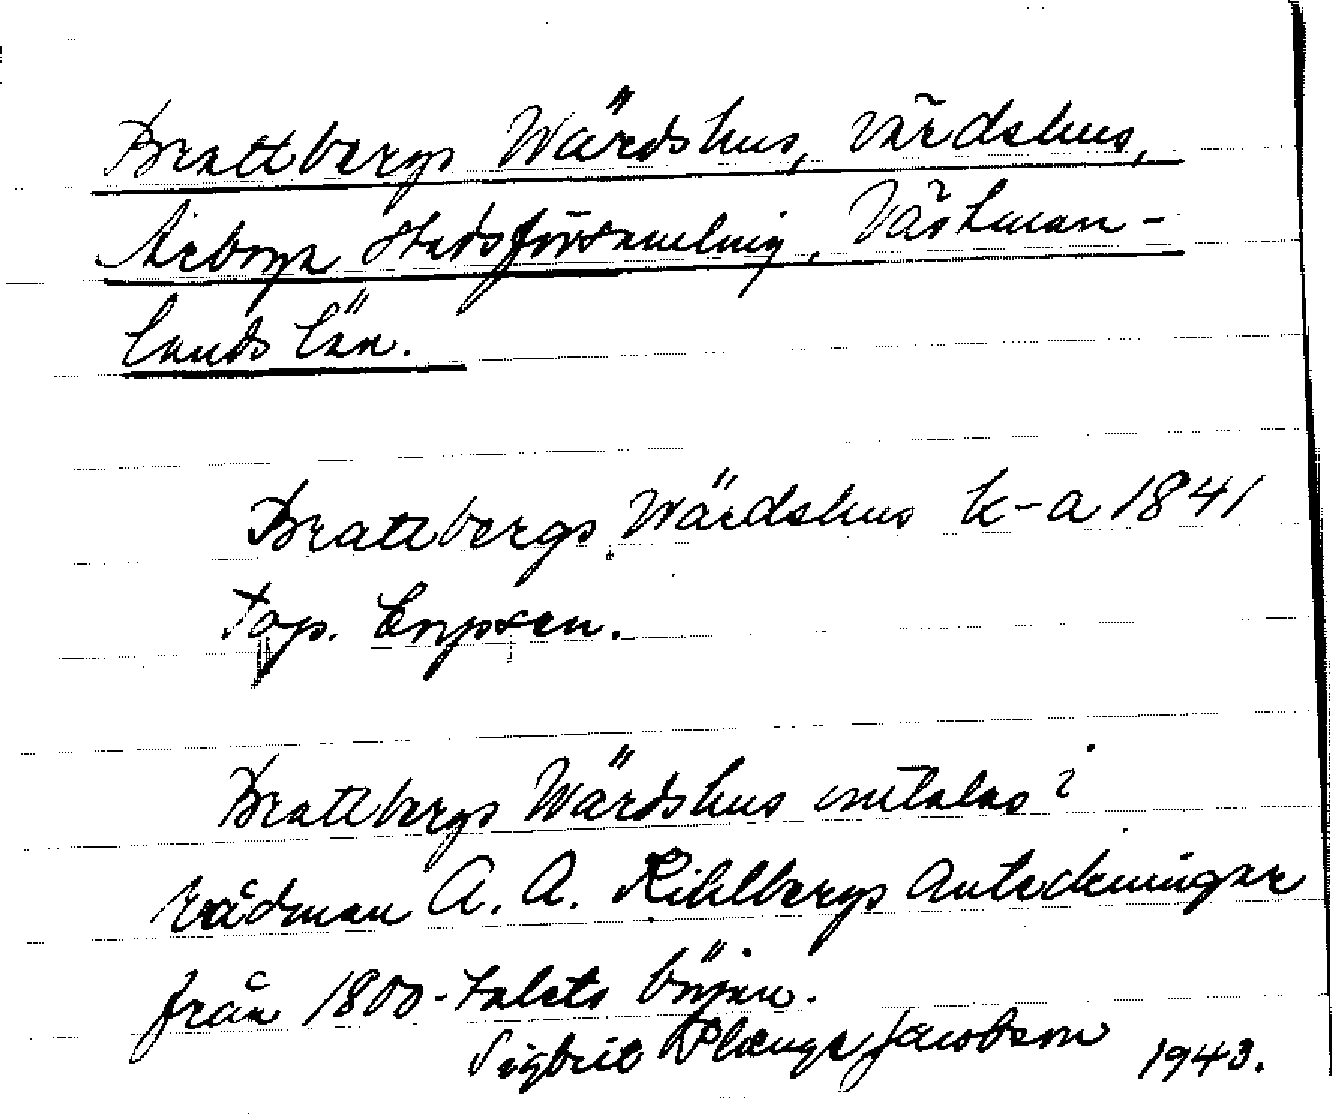 Brattbergs Wärdshus, värdshus,
Arboga stadsförsamling, Västman-
lands län.
Brattbergs Wärdshus k-a 1841
Top. Corpsen.
Brattbergs Wärdshus omtalas i
rådman A. A. Kihlbergs Anteckningar
från 1800-talets början.
Sigbrit Plænge Jacobson 1943.